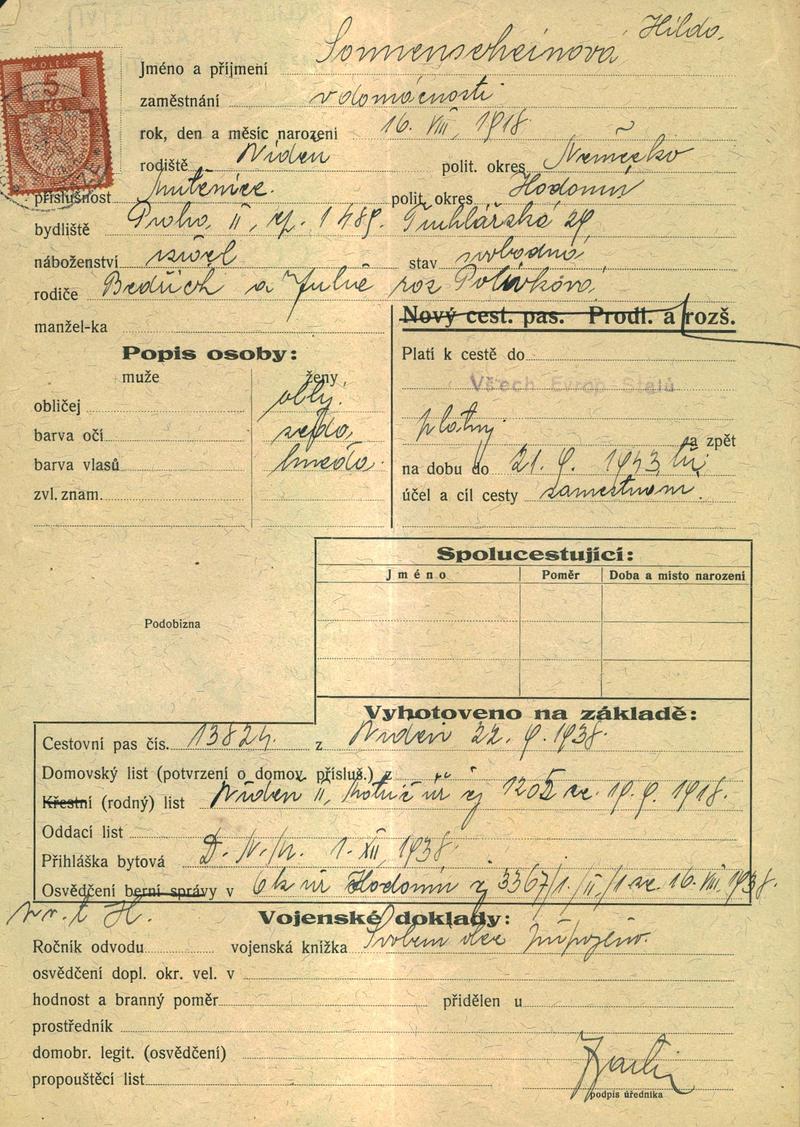 Sonnenscheinová Hilda.
KOLEK
5
Kč
Jméno a příjmení
zaměstnání v domácnosti
rok, den a měsíc narození 16. VIII. 1918
rodiště Wíden polit. okres Německo
příslušnost Mutěnice. polit. okres Hodonín
bydliště Praha II, čp. 1489. Truhlářská 29
náboženství israel stav svobodná
rodiče Bedřich a Julie roz Polívková
manžel-ka
Nový cest. pas. Prodl. a rozš.
Popis osoby:
muže ženy
obličej oblý.
barva očí šedá
barva vlasů hnědá.
zvl. znam.
Platí k cestě do
Všech Evrop Států
platný
na zpět
na dobu do 21. 9. 1943
účel a cíl cesty zaměstnání.
Spolucestující:
Jméno Poměr Doba a místo narození
Podobizna
Vyhotoveno na základě:
Cestovní pas čís. 13824. z Wíden 22. 9. 1938.
Domovský list (potvrzení o domov. přísluš.) z
Křestní (rodný) list Wíden II, čj 1205 ze 19. 9. 1918.
Oddací list
Přihláška bytová 1. XII. 1938.
Osvědčení berní správy v Hodonín čj 3367/1./II./1 ze 16. VIII. 1938.
Vojenské doklady:
Ročník odvodu vojenská knižka Svolení otce připojeno.
osvědčení dopl. okr. vel. v
hodnost a branný poměr přidělen u
prostředník
domobr. legit. (osvědčení)
propouštěcí list
podpis úředníka